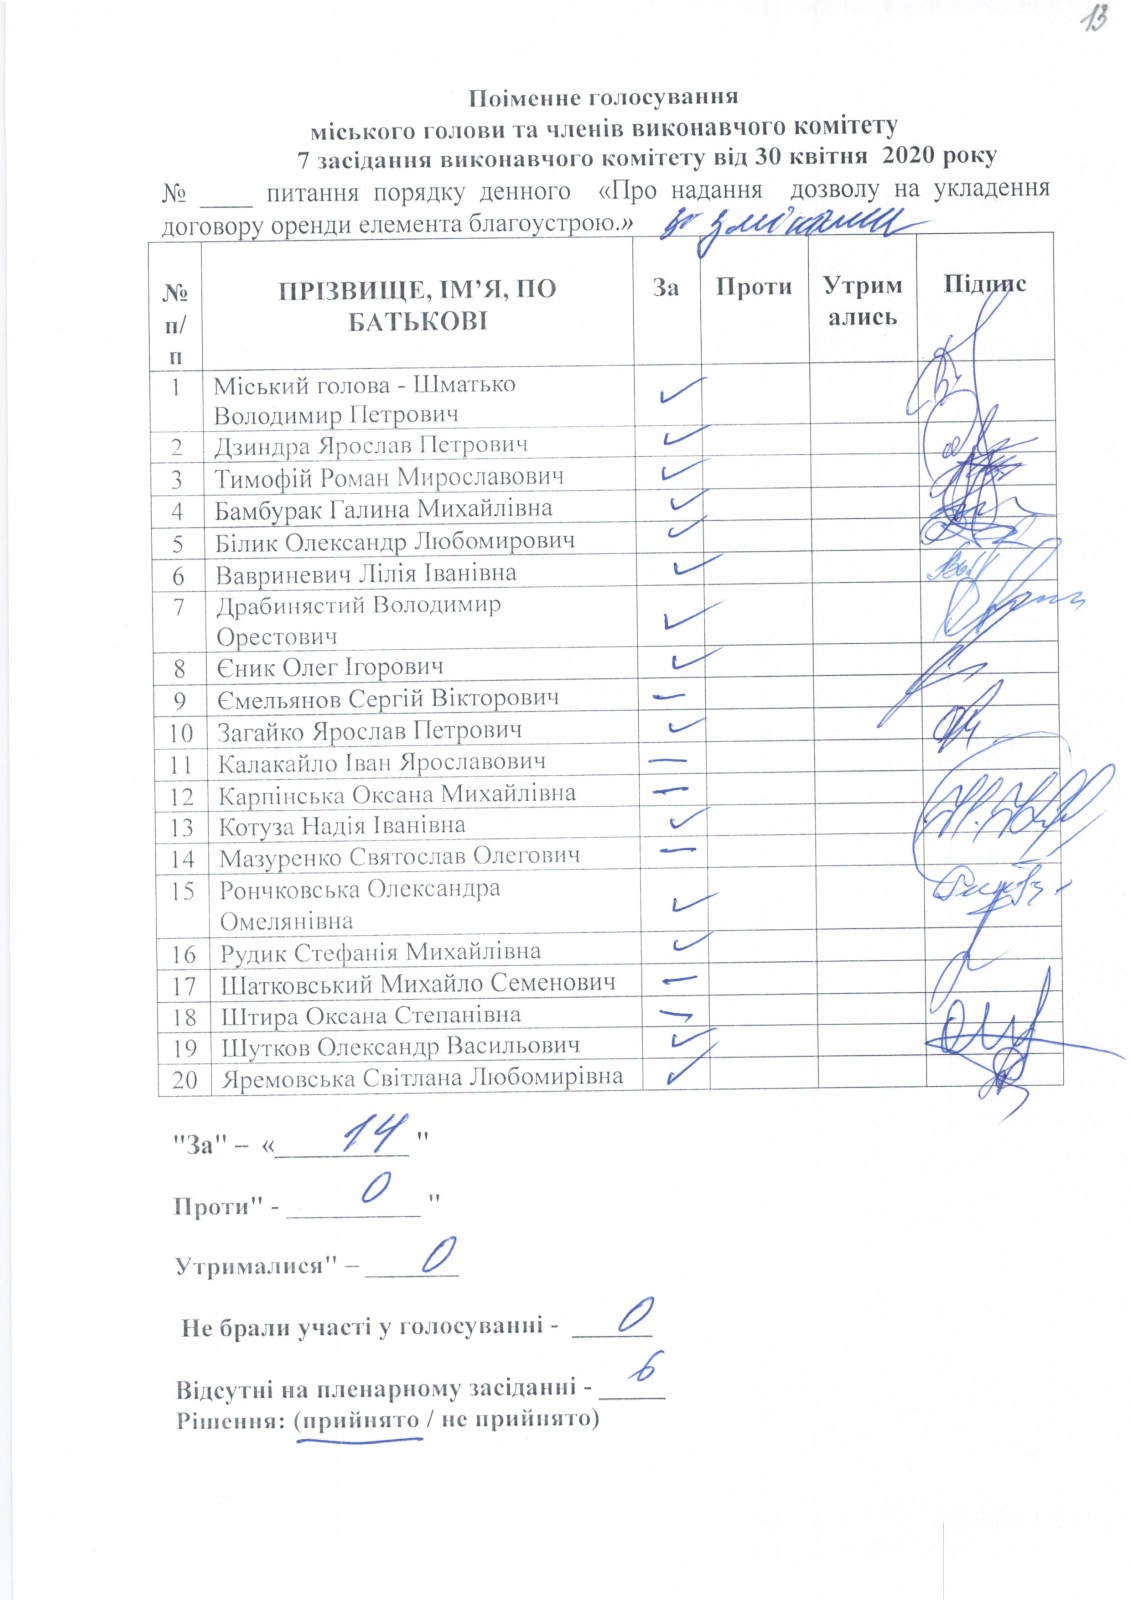 13
Поіменне голосування
міського голови та членів виконавчого комітету
7 засідання виконавчого комітету від 30 квітня 2020 року
№ ____ питання порядку денного «Про надання дозволу на укладення
договору оренди елемента благоустрою.» зі змінами
№ п/п ПРІЗВИЩЕ, ІМ’Я, ПО БАТЬКОВІ За Проти Утрим ались Підпис
1 Міський голова - Шматько
Володимир Петрович
2 Дзиндра Ярослав Петрович
3 Тимофій Роман Мирославович
4 Бамбурак Галина Михайлівна
5 Білик Олександр Любомирович
6 Вавриневич Лілія Іванівна
7 Драбинястий Володимир
Орестович
8 Єник Олег Ігорович
9 Ємельянов Сергій Вікторович
10 Загайко Ярослав Петрович
11 Калакайло Іван Ярославович
12 Карпінська Оксана Михайлівна
13 Котуза Надія Іванівна
14 Мазуренко Святослав Олегович
15 Рончковська Олександра
Омелянівна
16 Рудик Стефанія Михайлівна
17 Шатковський Михайло Семенович
18 Штира Оксана Степанівна
19 Шутков Олександр Васильович
20 Яремовська Світлана Любомирівна
"За" – «__________ 14 "
Проти" - __________ 0 "
Утрималися" – _______ 0
Не брали участі у голосуванні - ______ 0
Відсутні на пленарному засіданні - _____ 6
Рішення: (прийнято / не прийнято)